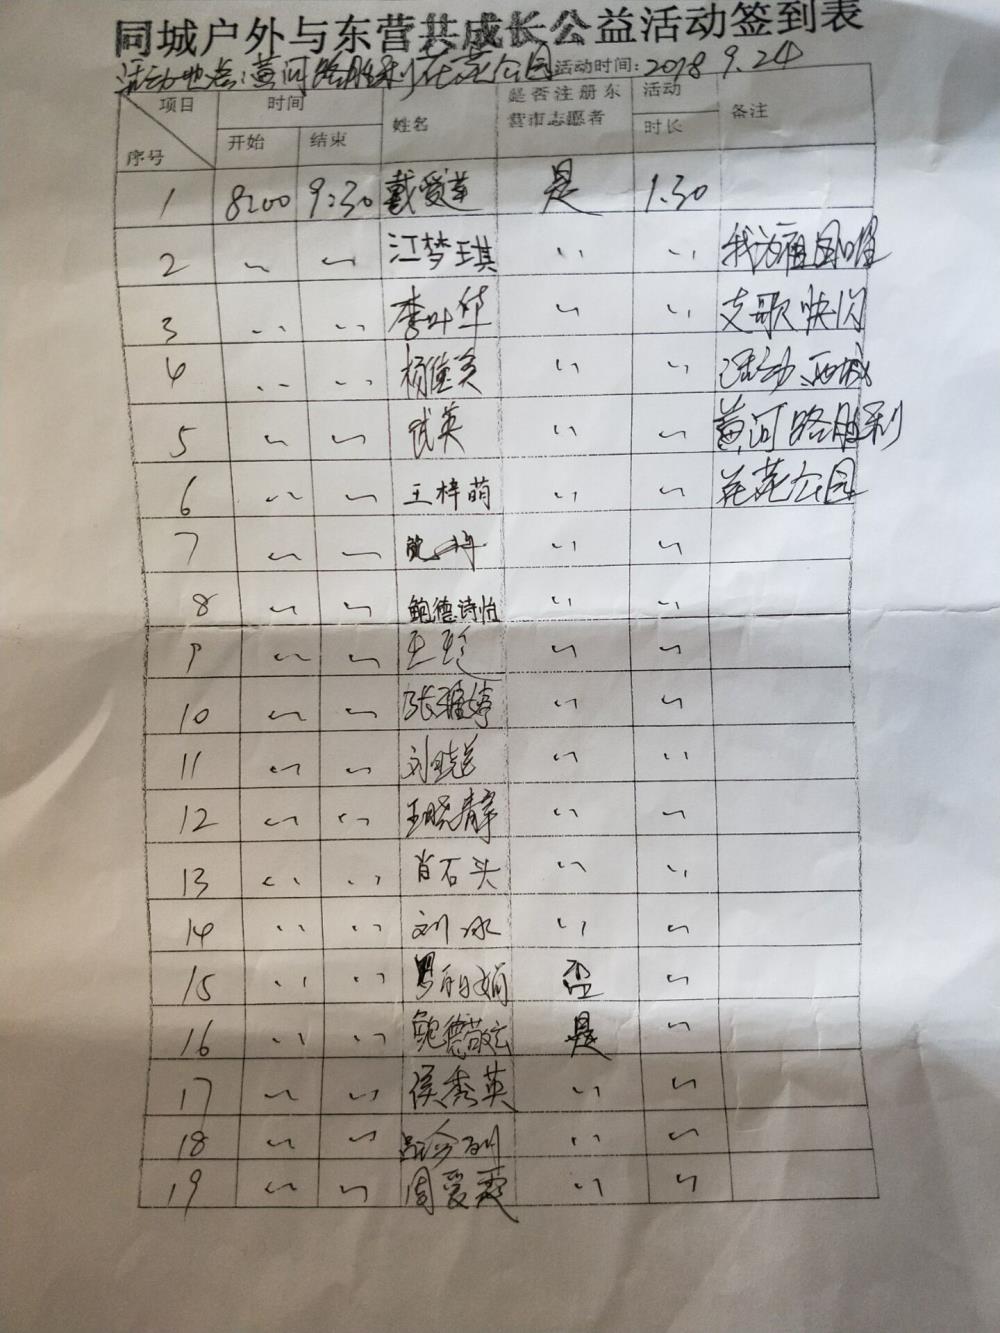 同城户外与东营共成长公益活动签到表
活动地点:黄河路胜利花苑公园 活动时间: 2018 9.24
项目 序号 时间 姓名 是否注册东营市志愿者 活动时长 备注
开始 结束
1 8:00 9:30 戴爱莲 是 1.30
2 〃 〃 江梦琪 〃 〃 我为祖国唱
3 〃 〃 李叶华 〃 〃 支歌快闪
4 〃 〃 杨佳美 〃 〃 活动.西城
5 〃 〃 武英 〃 〃 黄河路胜利
6 〃 〃 王梓萌 〃 〃 花苑公园
7 〃 〃 〃 〃
8 〃 〃 鲍德诗怡 〃 〃
9 〃 〃 王珍 〃 〃
10 〃 〃 张雅婷 〃 〃
11 〃 〃 刘晓 〃 〃
12 〃 〃 王晓静 〃 〃
13 〃 〃 肖石头 〃 〃
14 〃 〃 刘冰 〃 〃
15 〃 〃 罗丽娟 否 〃
16 〃 〃 鲍德敬宏 是 〃
17 〃 〃 侯秀英 〃 〃
18 〃 〃 〃 〃
19 〃 〃 周爱霞 〃 〃